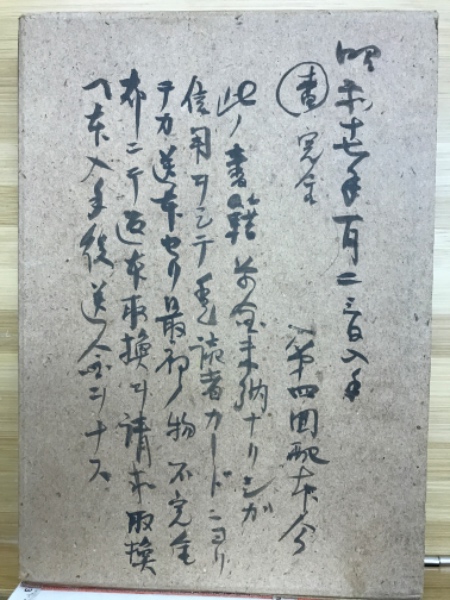 昭和十七年一月二三日入手
書 完全 第四回配本分
此ノ書籍 金未納ナリシガ
信用ヲシテ愛読者カードニヨリ
テカ送本セリ最初ノ物不完全
ニテ返本取換ヲ請求取換
ヘ本入手後送金ヲナス